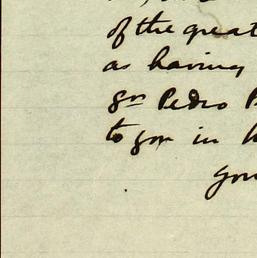 of the great
as having
Sr Pedro
to you in
you